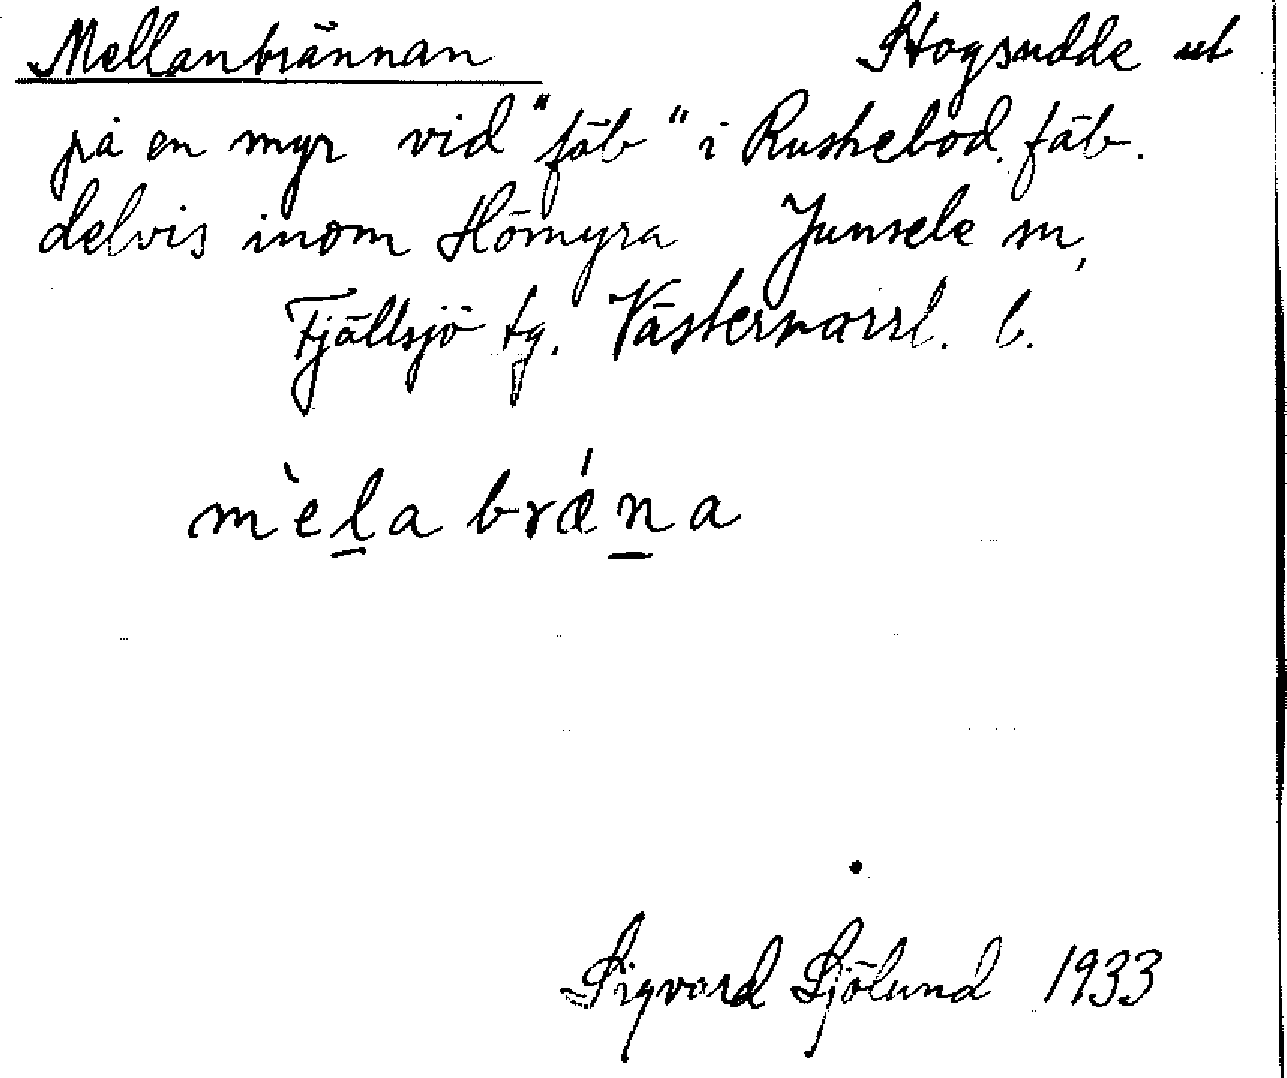 Mellanbrännan Skogsudde ut
på en myr vid "fäb" i Ruskebod. fäb.
delvis inom Hömyra Junsele sn,
Fjällsjö tg. Västernorrl. l.
mèla brǽna
Sigvard Sjölund 1933